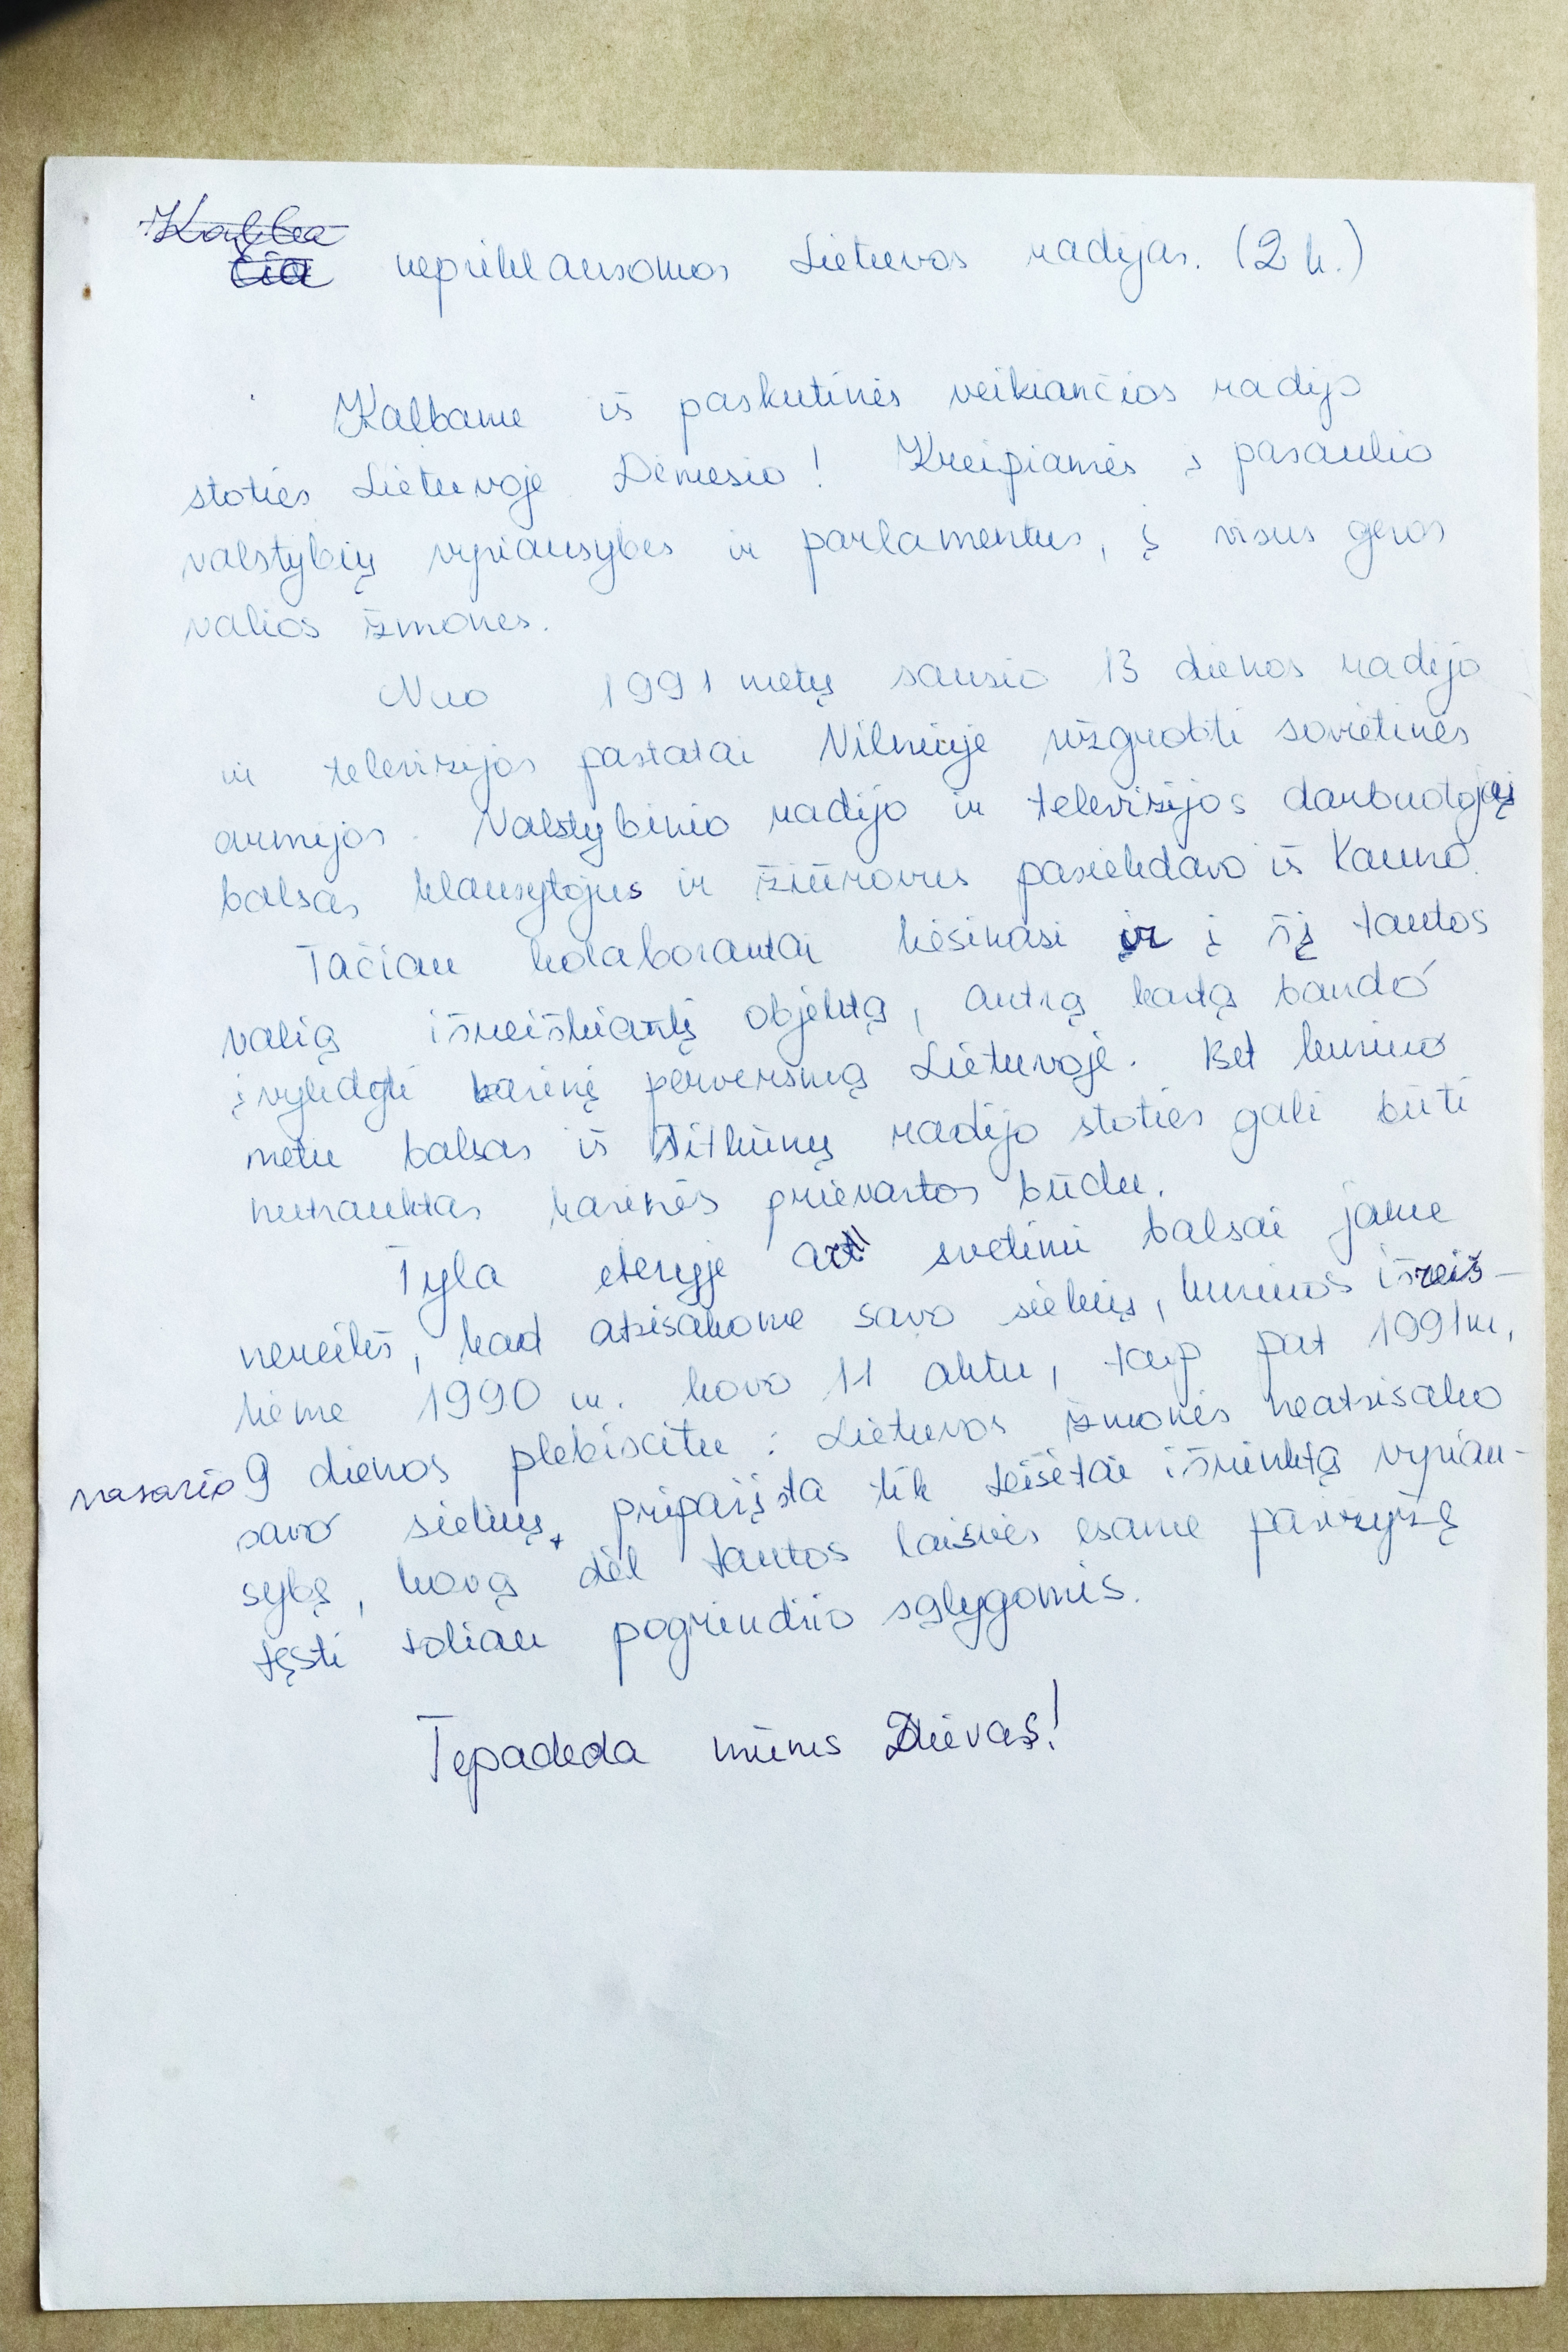 Kalba
čia nepriklausomos Lietuvos radijas. (2 k.)
Kalbame iš paskutinės veikiančios radijo
stoties Lietuvoje. Dėmesio! Kreipiamės į pasaulio
valstybių vyriausybes ir parlamentus, į visus geros
valios žmones.
Nuo 1991 metų sausio 13 dienos radijo
ir televizijos pastatai Vilniuje užgrobti sovietinės
armijos. Valstybinio radijo ir televizijos darbuotojų
balsas klausytojus ir žiūrovus pasiekdavo iš Kauno.
Tačiau kolaborantai kėsinasi ir į šį tautos
valią išreiškiantį objektą, antrą kartą bando
įvykdyti karinį perversmą Lietuvoje. Bet kuriuo
metu balsas iš Sitkūnų radijo stoties gali būti
nutrauktas karinės prievartos būdu.
Tyla eteryje ar svetimi balsai jame
nereikš, kad atsisakome savo siekių, kuriuos išreiš-
kėme 1990 m. kovo 11 aktu, taip pat 1991 m.
vasario 9 dienos plebiscitu: Lietuvos žmonės neatsisako
savo siekių, pripažįsta tik teisėtai išrinktą vyriau-
sybę, kovą dėl tautos laisvės esame pasiryžę
tęsti toliau pogrindžio sąlygomis.
Tepadeda mums Dievas!